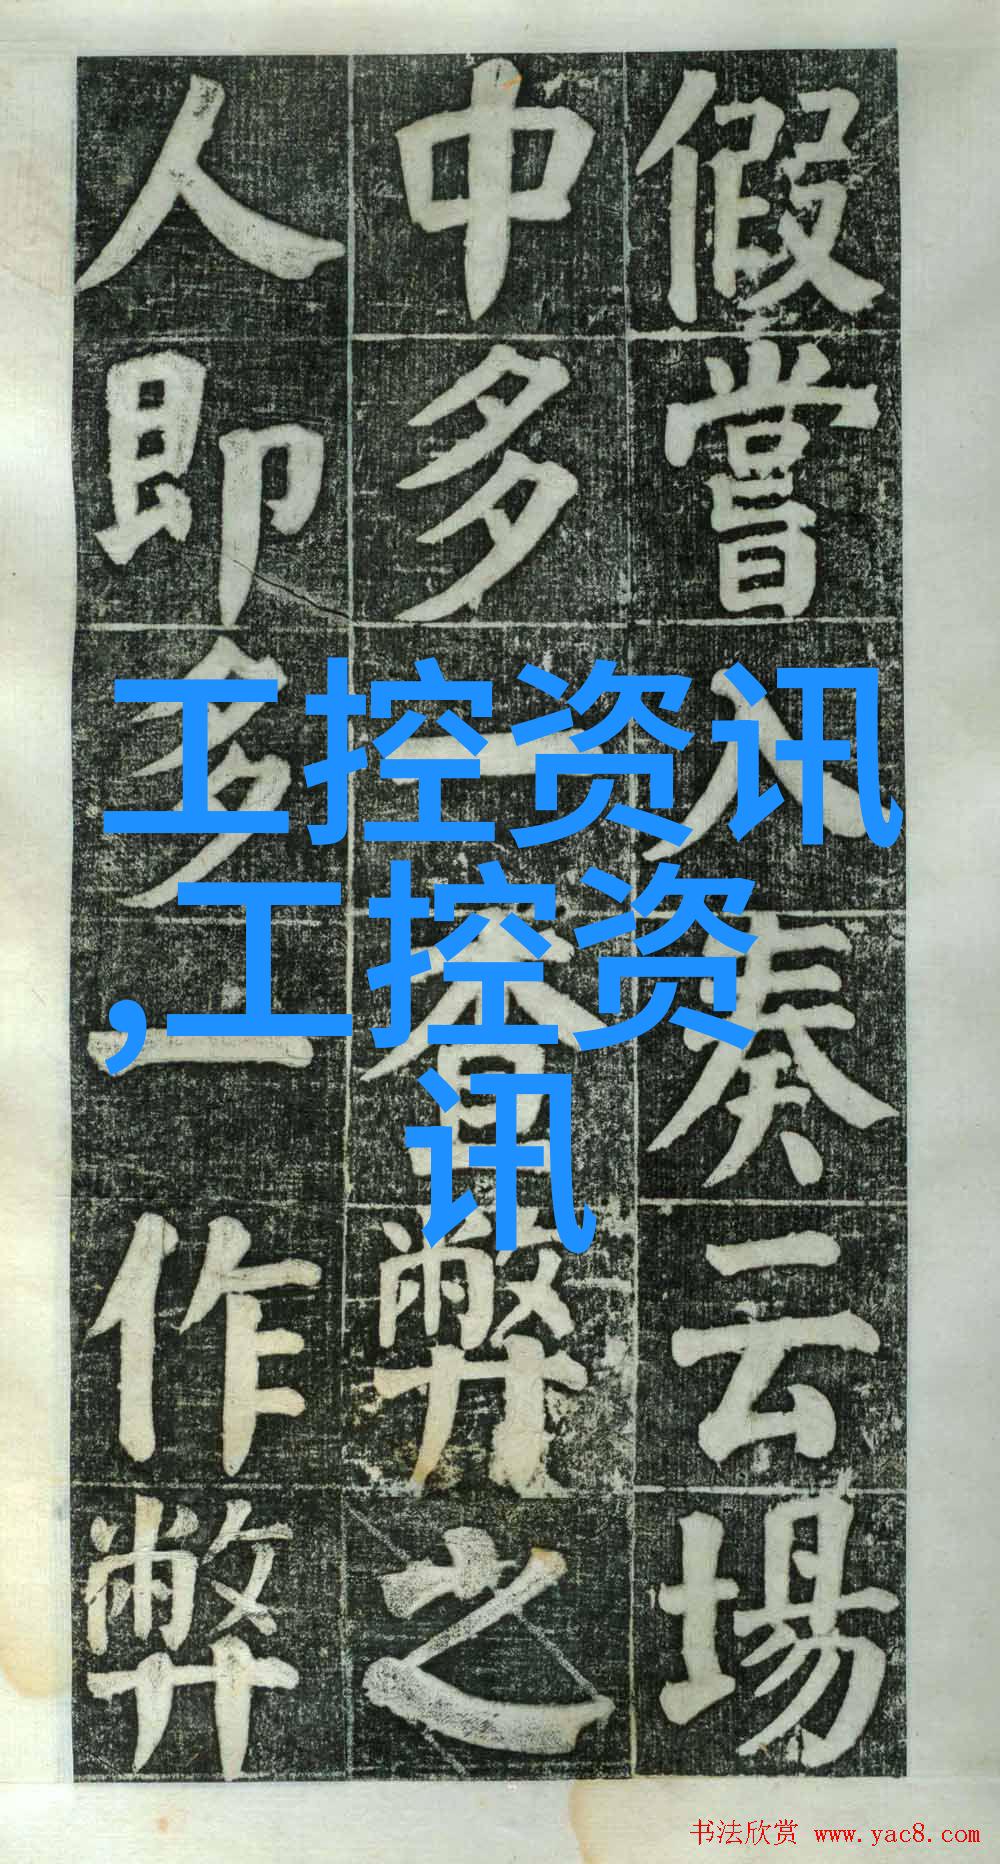 假嘗入奏云場
中多一查弊之
人即多一作弊
工控资讯
,工控资
讯
书法欣赏 www.yac8.com